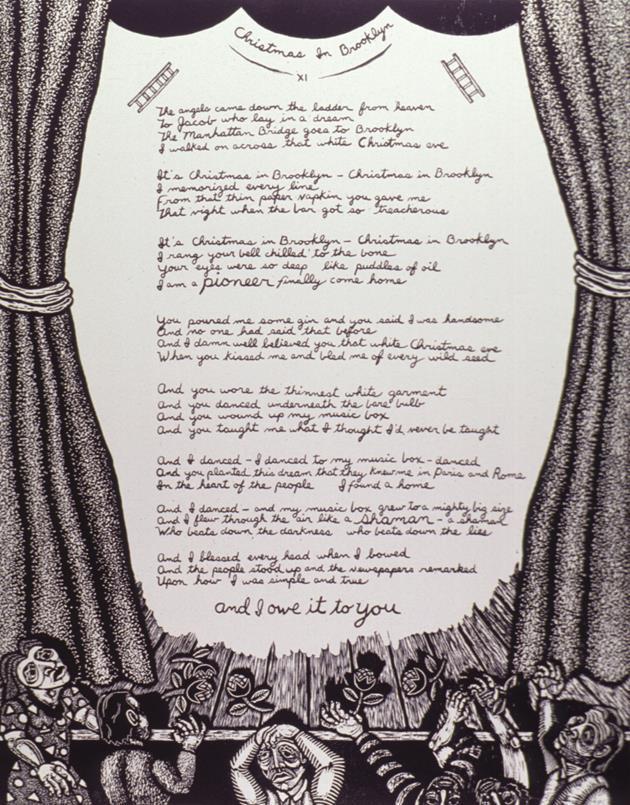 Christmas In Brooklyn
XI
The angels came down the ladder from heaven
To Jacob who lay in a dream
The Manhattan Bridge goes to Brooklyn
I walked on across that white Christmas eve
It's Christmas in Brooklyn - Christmas in Brooklyn
I memorized every line
From that thin paper napkin you gave me
That night when the bar got so treacherous
It's Christmas in Brooklyn - Christmas in Brooklyn
I rang your bell chilled to the bone
Your eyes were so deep like puddles of oil
I am a pioneer finally come home
You poured me some gin and you said I was handsome
And no one had said that before
And I damn well believed you that white Christmas eve
When you kissed me and bled me of every wild seed
And you wore the thinnest white garment
And you danced underneath the bare bulb
And you wound up my music box
And you taught me what I thought I'd never be taught
And I danced - I danced to my music box - danced
And you planted this dream that they knew me in Paris and Rome
In the heart of the people I found a home
And I danced - and my music box grew to a mighty big size
And I flew through the air like a shaman - a shaman
Who beats down the darkness who beats down the lies
And I blessed every head when I bowed
And the people stood up and the newspapers remarked
Upon how I was simple and true
and I owe it to you